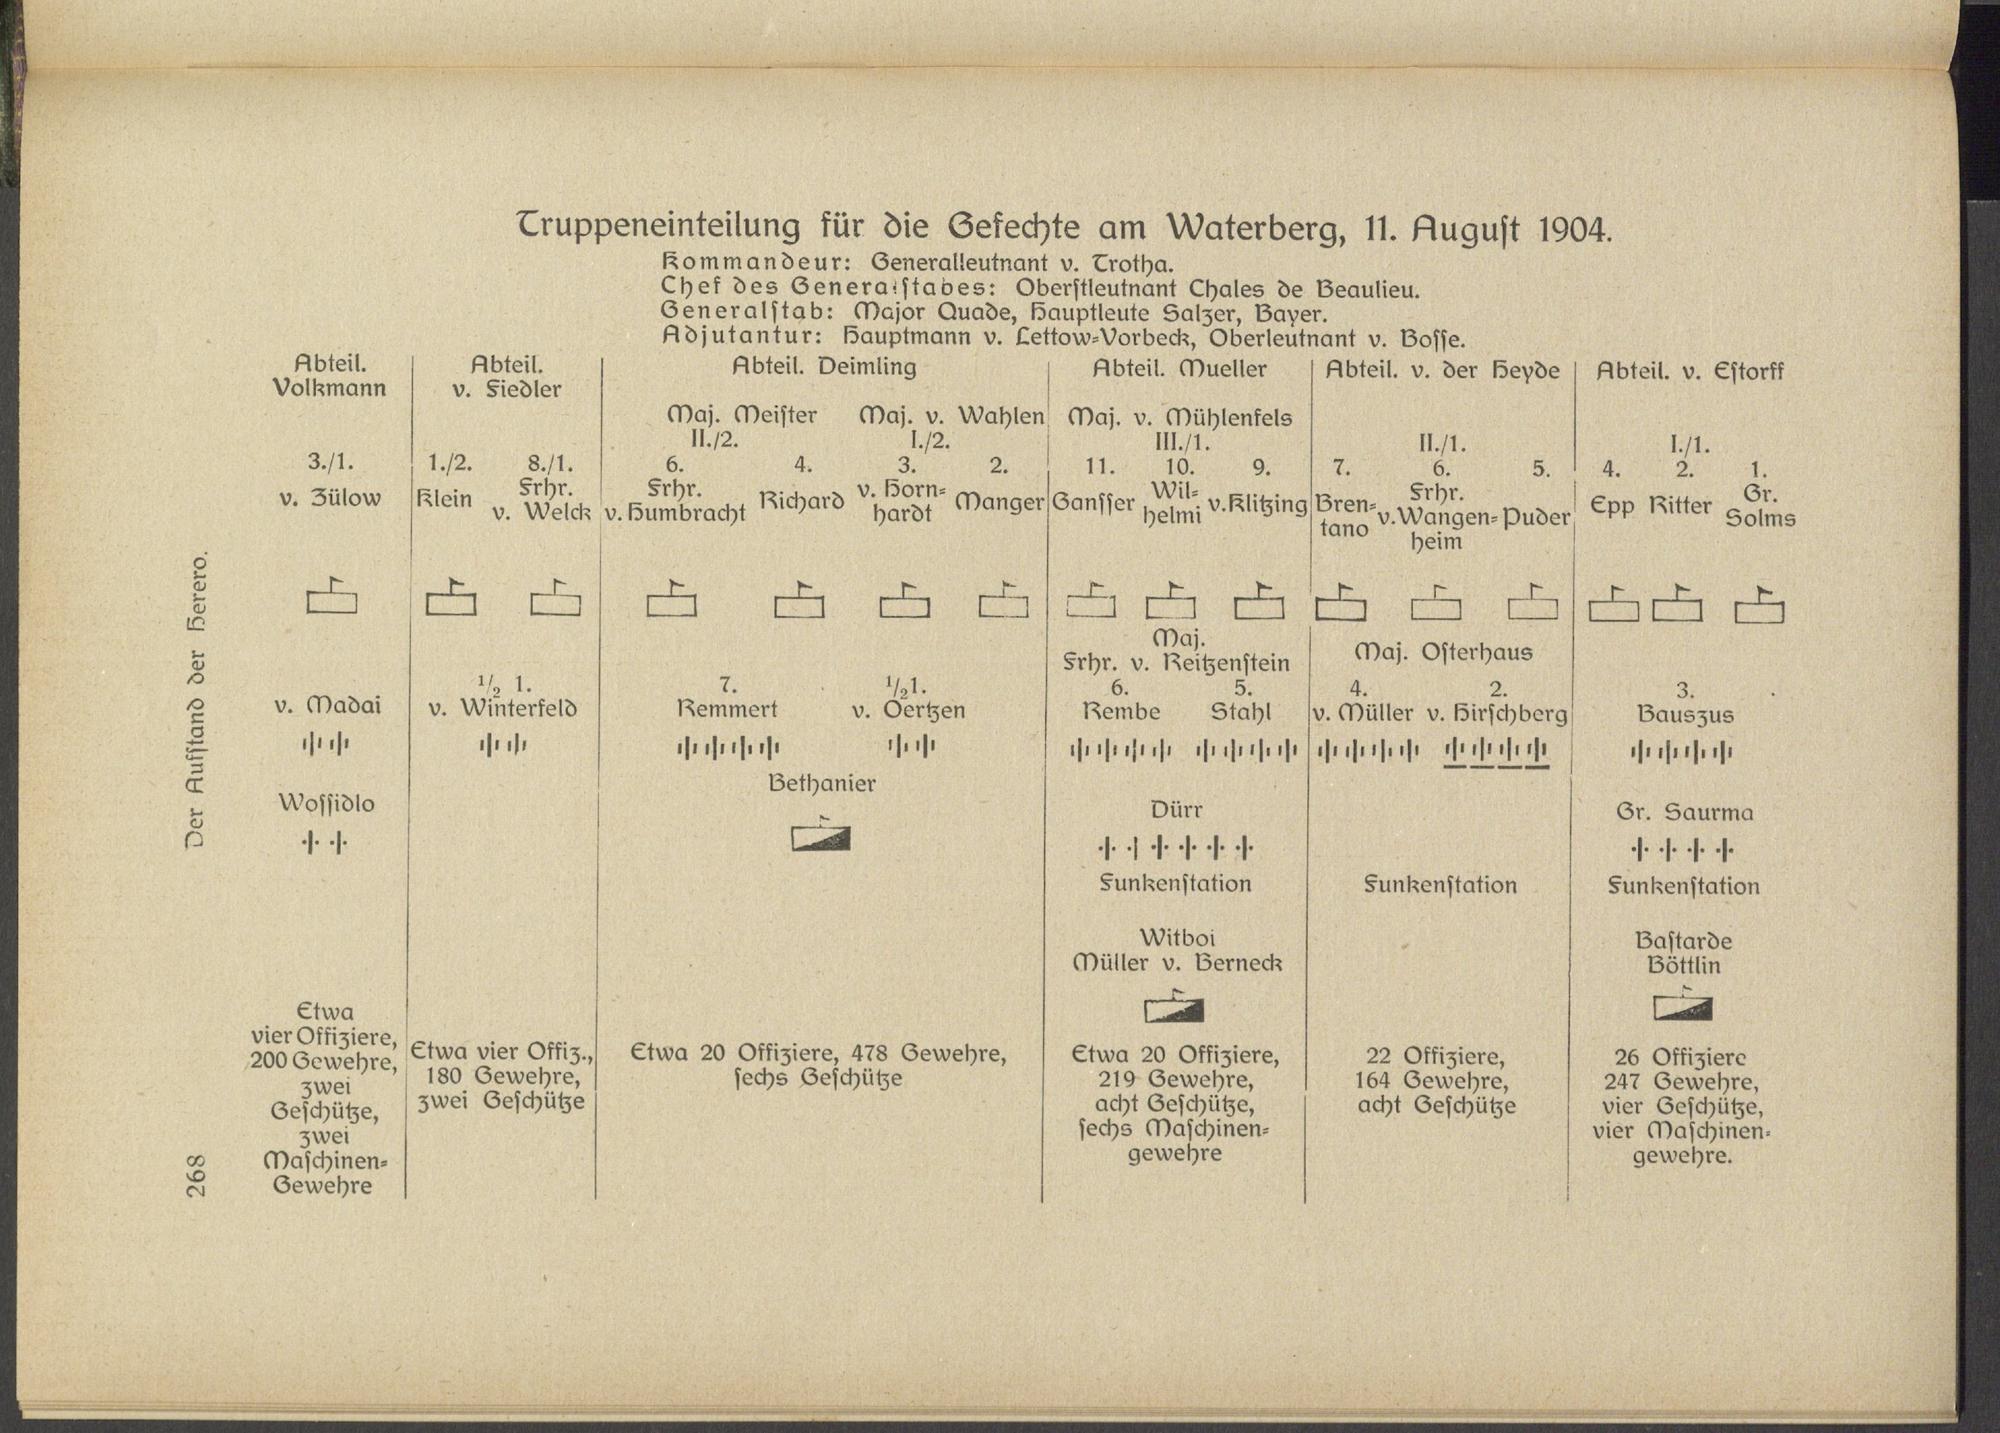 Truppeneinteilung für die Gefechte am Waterberg, 11. August 1904.
Kommandeur: Generalleutnant v. Trotha.
Chef des Generalstabes: Oberstleutnant Chales de Beaulieu.
Generalstab: Major Quade, Hauptleute Salzer, Bayer.
Adjutantur: Hauptmann v. Lettow-Vorbeck, Oberleutnant v. Bosse.
Abteil.
Volkmann
3./1.
v. Zülow
v. Madai
Wossidlo
Etwa
vier Offiziere,
200 Gewehre,
zwei
Geschütze,
zwei
Maschinen-
Gewehre
Abteil.
v. Fiedler
1./2. 8./1.
Klein Frhr.
v. Welck
1/2 1.
v. Winterfeld
Etwa vier Offiz.,
180 Gewehre,
zwei Geschütze
Abteil. Deimling
Maj. Meister Maj. v. Wahlen
II./2. I./2.
6. 4. 3. 2.
Frhr.
v. Humbracht Richard v. Horn-
hardt Manger
7. 1/2 1.
Remmert v. Oertzen
Bethanier
Etwa 20 Offiziere, 478 Gewehre,
sechs Geschütze
Abteil. Mueller
Maj. v. Mühlenfels
III./1.
11. 10. 9.
Gansser Wil-
helmi v. Klitzing
Maj.
Frhr. v. Reitzenstein
6. 5.
Rembe Stahl
Dürr
Funkenstation
Witboi
Müller v. Berneck
Etwa 20 Offiziere,
219 Gewehre,
acht Geschütze,
sechs Maschinen-
gewehre
Abteil. v. der Heyde
II./1.
7. 6. 5.
Bren-
tano Frhr.
v. Wangen-
heim Puder
Maj. Osterhaus
4. 2.
v. Müller v. Hirschberg
Funkenstation
22 Offiziere,
164 Gewehre,
acht Geschütze
Abteil. v. Estorff
I./1.
4. 2. 1.
Epp Ritter Gr.
Solms
3.
Bauszus
Gr. Saurma
Funkenstation
Bastarde
Böttlin
26 Offiziere
247 Gewehre,
vier Geschütze,
vier Maschinen-
gewehre.
Der Aufstand der Herero.
268